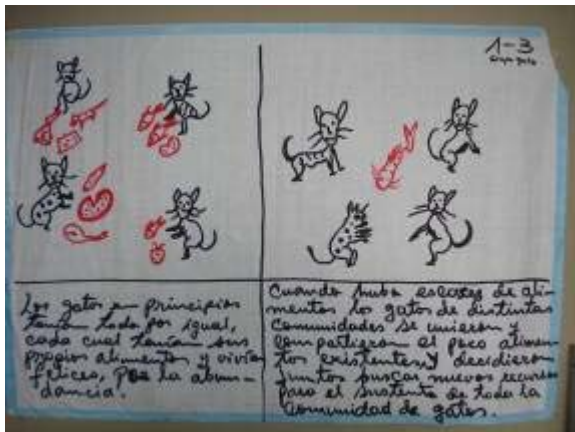 1-3
Los gatos en principios
tenían todo por igual,
cada cual tenían sus
propios alimentos y vivían
felices, por la abun-
dancia.
Cuando hubo escases de ali-
mentos los gatos de distintas
comunidades se unieron y
compartieron el poco alimen-
tos existentes y decidieron
juntos buscar nuevos recursos
para el sustento de toda la
comunidad de gatos.